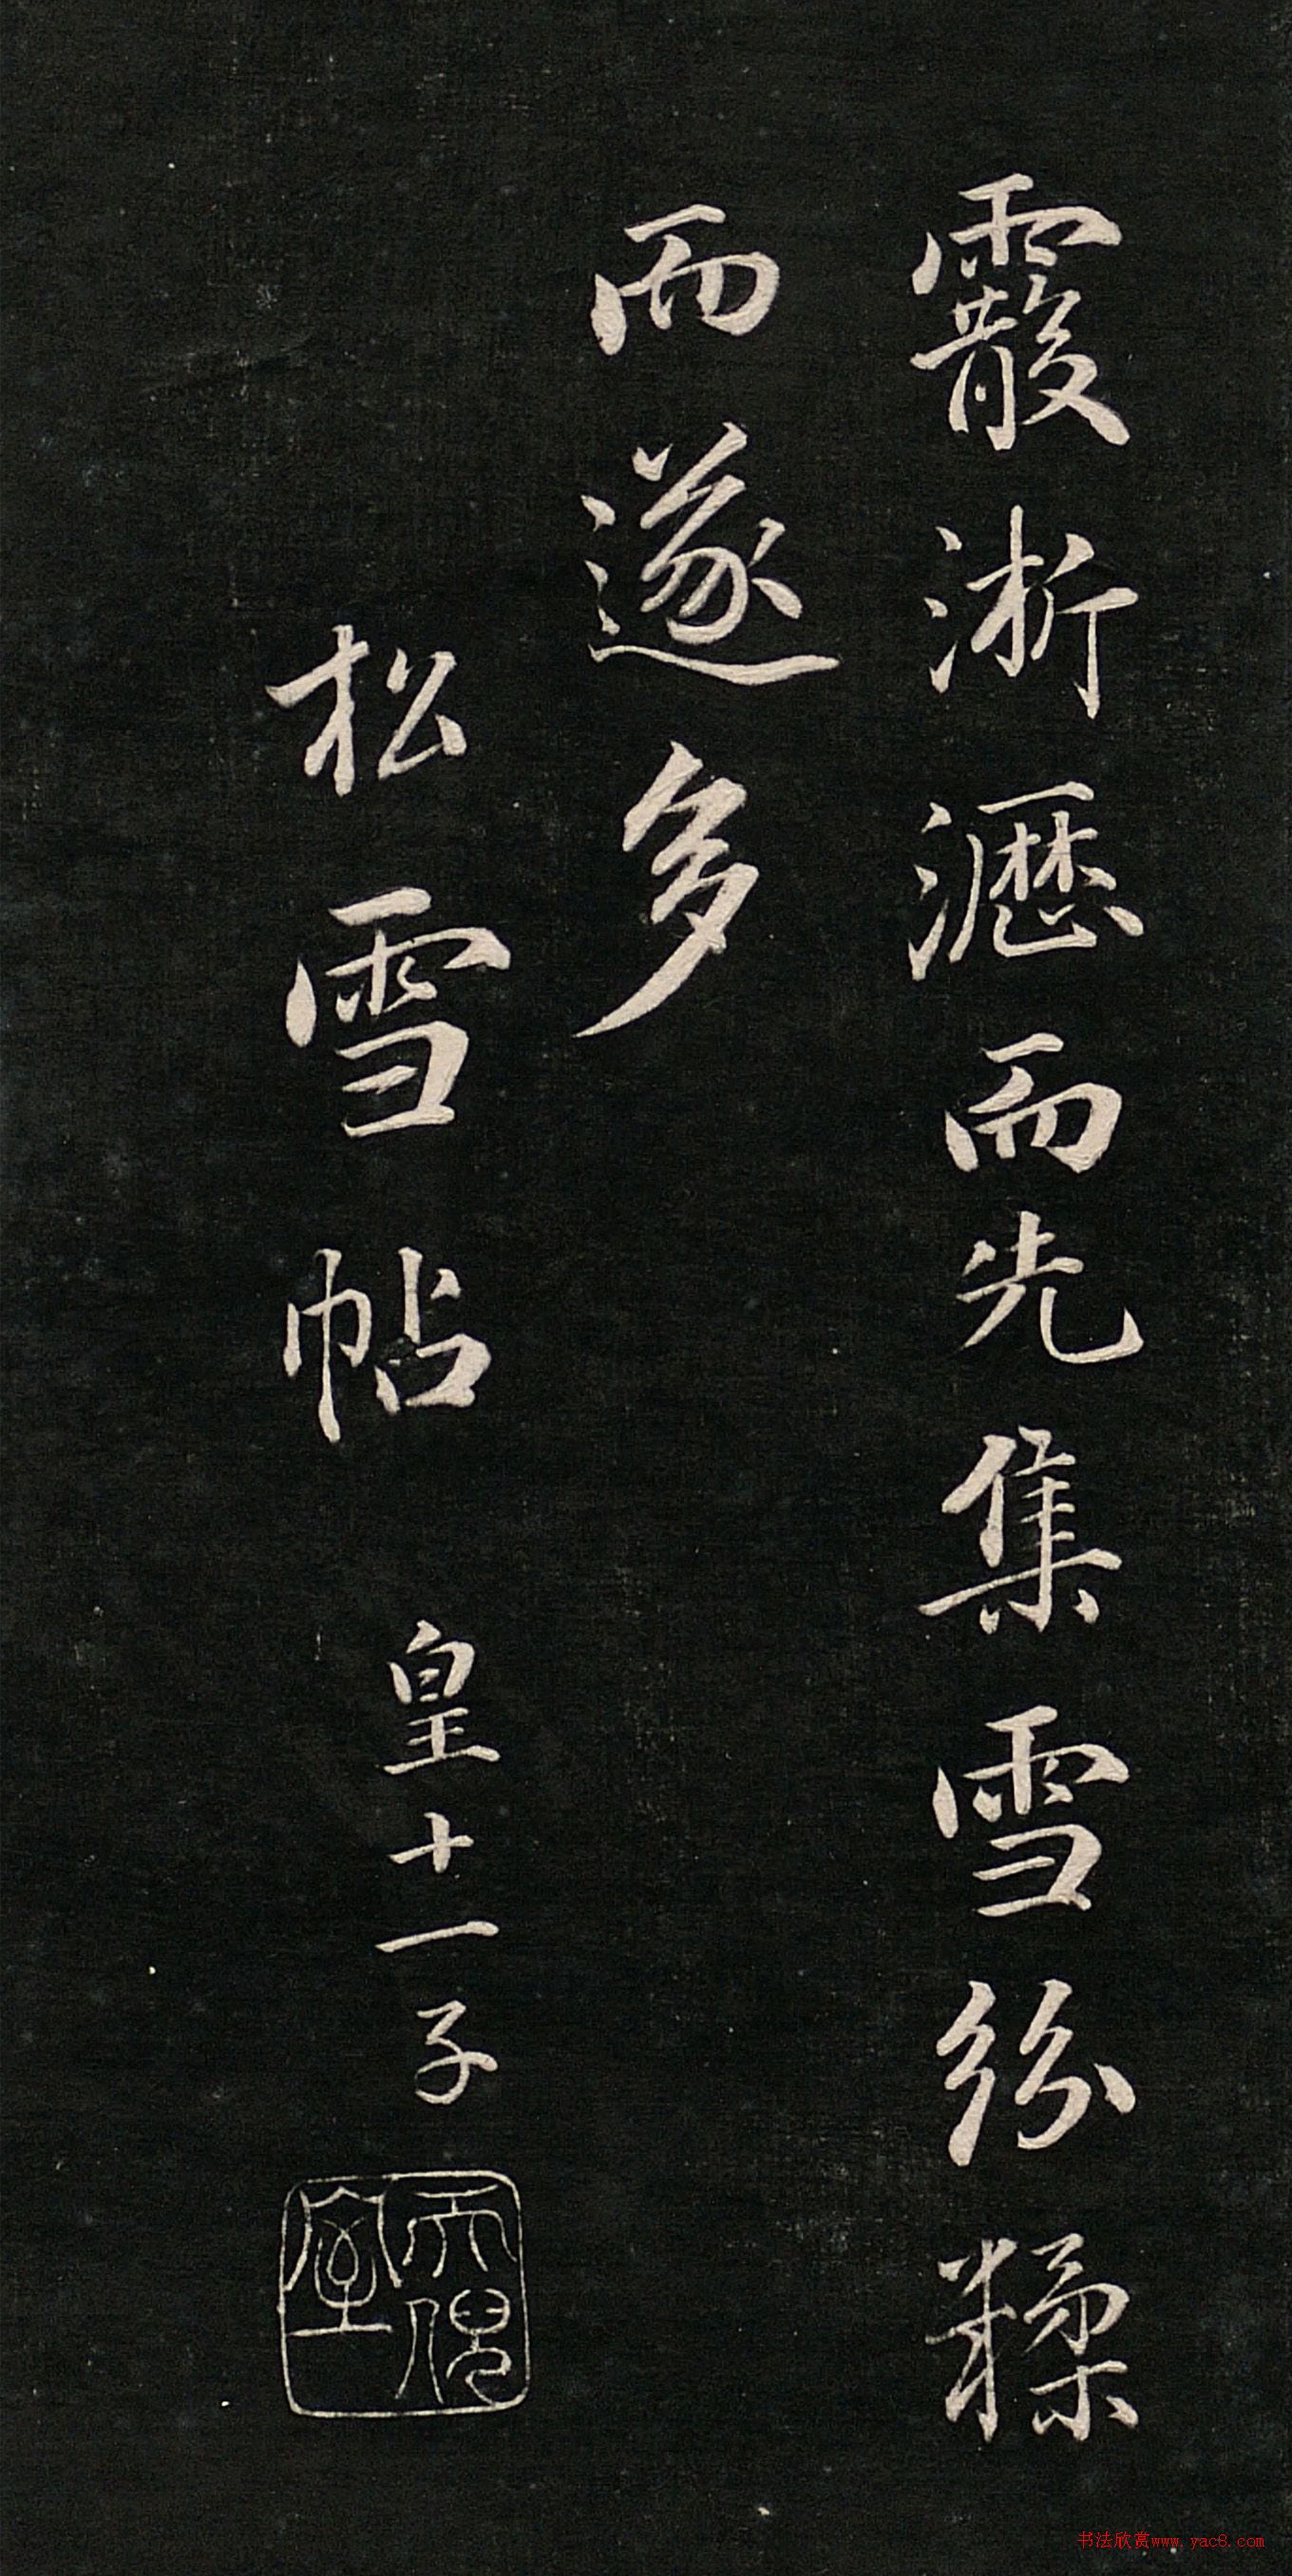 霰淅瀝而先集雪紛糅
而遂多
松雪帖
皇十一子
書法欣赏www.yac8.com